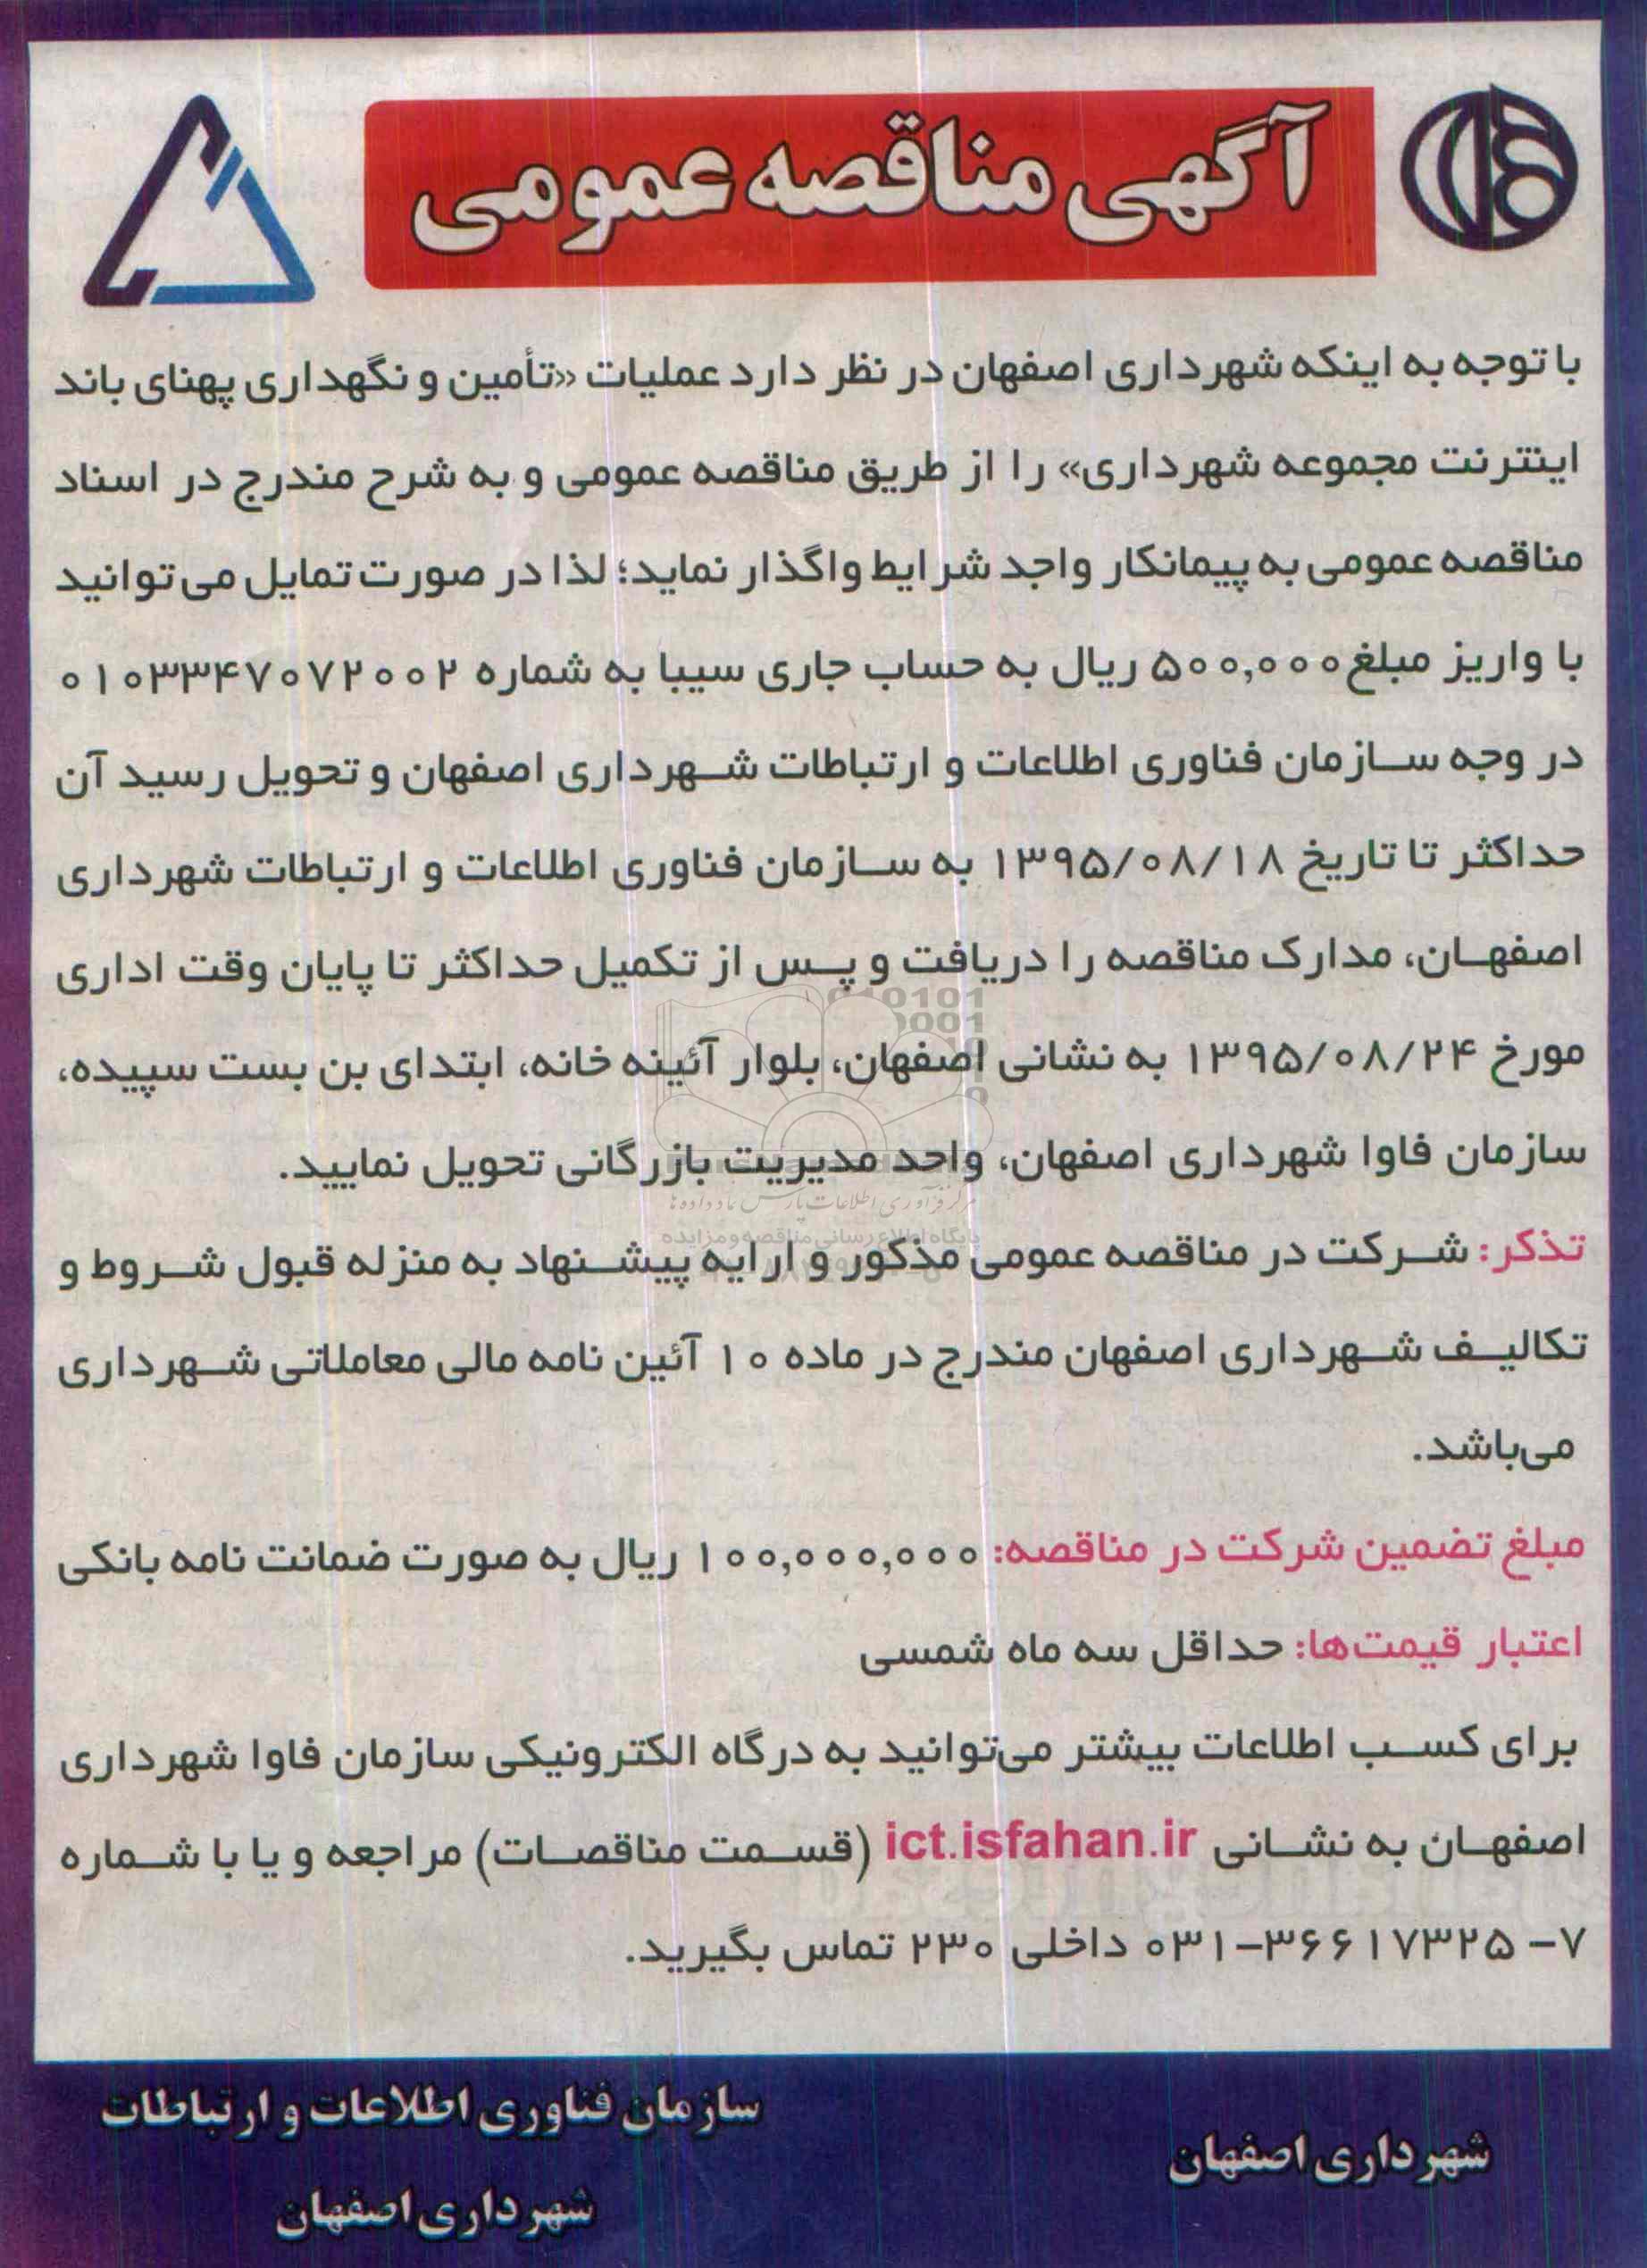 آگهی مناقصه عمومی
با توجه به اینکه شهرداری اصفهان در نظر دارد عملیات «تأمین و نگهداری پهنای باند
اینترنت مجموعه شهرداری» را از طریق مناقصه عمومی و به شرح مندرج در اسناد
مناقصه عمومی به پیمانکار واجد شرایط واگذار نماید؛ لذا در صورت تمایل می‌توانید
با واریز مبلغ ۵۰۰,۰۰۰ ریال به حساب جاری سیبا به شماره ۰۱۰۳۳۴۷۰۷۲۰۰۲
در وجه سازمان فناوری اطلاعات و ارتباطات شهرداری اصفهان و تحویل رسید آن
حداکثر تا تاریخ ۱۳۹۵/۰۸/۱۸ به سازمان فناوری اطلاعات و ارتباطات شهرداری
اصفهان، مدارک مناقصه را دریافت و پس از تکمیل حداکثر تا پایان وقت اداری
مورخ ۱۳۹۵/۰۸/۲۴ به نشانی اصفهان، بلوار آئینه خانه، ابتدای بن بست سپیده،
سازمان فاوا شهرداری اصفهان، واحد مدیریت بازرگانی تحویل نمایید.
مرکز فرآوری اطلاعات پارس ماد داده ها
پایگاه اطلاع رسانی مناقصه و مزایده
تذکر: شرکت در مناقصه عمومی مذکور و ارایه پیشنهاد به منزله قبول شروط و
تکالیف شهرداری اصفهان مندرج در ماده ۱۰ آئین نامه مالی معاملاتی شهرداری
می‌باشد.
مبلغ تضمین شرکت در مناقصه: ۱۰۰,۰۰۰,۰۰۰ ریال به صورت ضمانت نامه بانکی
اعتبار قیمت‌ها: حداقل سه ماه شمسی
برای کسب اطلاعات بیشتر می‌توانید به درگاه الکترونیکی سازمان فاوا شهرداری
اصفهان به نشانی ict.isfahan.ir (قسمت مناقصات) مراجعه و یا با شماره
۰۳۱-۳۶۶۱۷۳۲۵ -۷ داخلی ۲۳۰ تماس بگیرید.
شهرداری اصفهان
سازمان فناوری اطلاعات و ارتباطات
شهرداری اصفهان